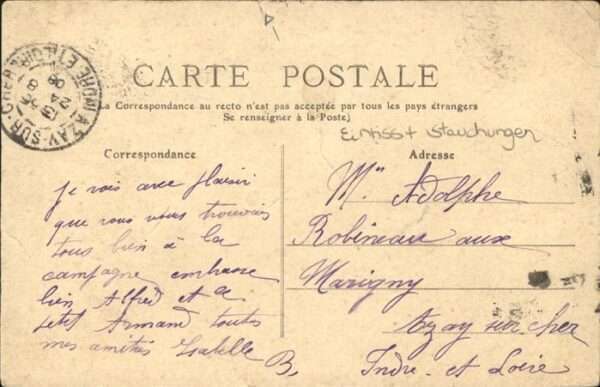 CARTE POSTALE
La Correspondance au recto n'est pas acceptée par tous les pays étrangers
Se renseigner à la Poste)
AZAY-SUR-CHER
INDRE-ET-LOIRE
Einriss + Stauchungen
Correspondance
Je vois avec plaisir
que vous vous trouvais
tous bien à la
campagne embrasse
bien Alfred et
Armand toutes
mes amitiés Isabelle B,
Adresse
Mm Adolphe
Robineau aux
Marigny
Azay sur cher
Indre et Loire